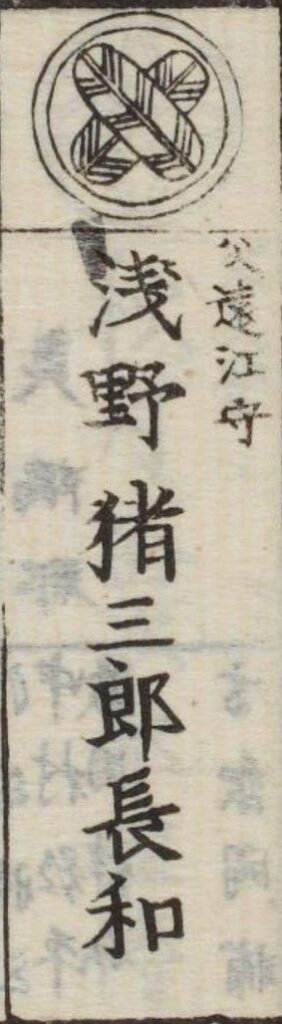 父遠江守
浅野猪三郎長和